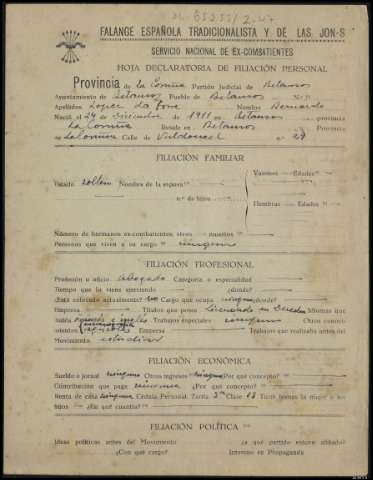 FALANGE ESPAÑOLA TRADICIONALISTA Y DE LAS JON-S
SERVICIO NACIONAL DE EX-COMBATIENTES
HOJA DECLARATORIA DE FILIACIÓN PERSONAL
Provincia de la Coruña Partido Judicial de Betanzos
Ayuntamiento de Betanzos Pueblo de Betanzos N.º
Apellidos Lopez da Torre Nombre Bernardo
Nació el 24 de diciembre de 1911 en Betanzos provincia
La Coruña Reside en Betanzos Provincia
de La Coruña Calle de Valdoncel n.º 29
FILIACIÓN FAMILIAR
Varones - Edades
Estado soltero Nombre de la esposa
n.º de hijos
Hembras - Edades
Número de hermanos ex-combatientes vivos muertos
Personas que viven a su cargo ninguna
FILIACIÓN PROFESIONAL
Profesión u oficio abogado Categoría o especialidad
Tiempo que la viene ejerciendo ¿dónde?
¿Está colocado actualmente? no Cargo que ocupa ninguno ¿dónde?
Empresa Títulos que posee Licenciado en Derecho Idiomas que
habla francés e inglés Trabajos especiales ninguno Otros conoci-
mientos Empresa Trabajos que realizaba antes del
Movimiento estudiar
FILIACIÓN ECONÓMICA
Sueldo o jornal ninguno Otros ingresos ninguno Por qué concepto?
Contribución que paga ninguna ¿Por qué concepto?
Renta de casa ninguna Cédula Personal Tarifa 3ª Clase 13 Tiene bienes la mujer o los
hijos ¿En qué cuantía?
FILIACIÓN POLÍTICA
Ideas políticas antes del Movimiento ¿a qué partido estuvo afiliado?
¿Con qué cargo? Intervino en Propaganda